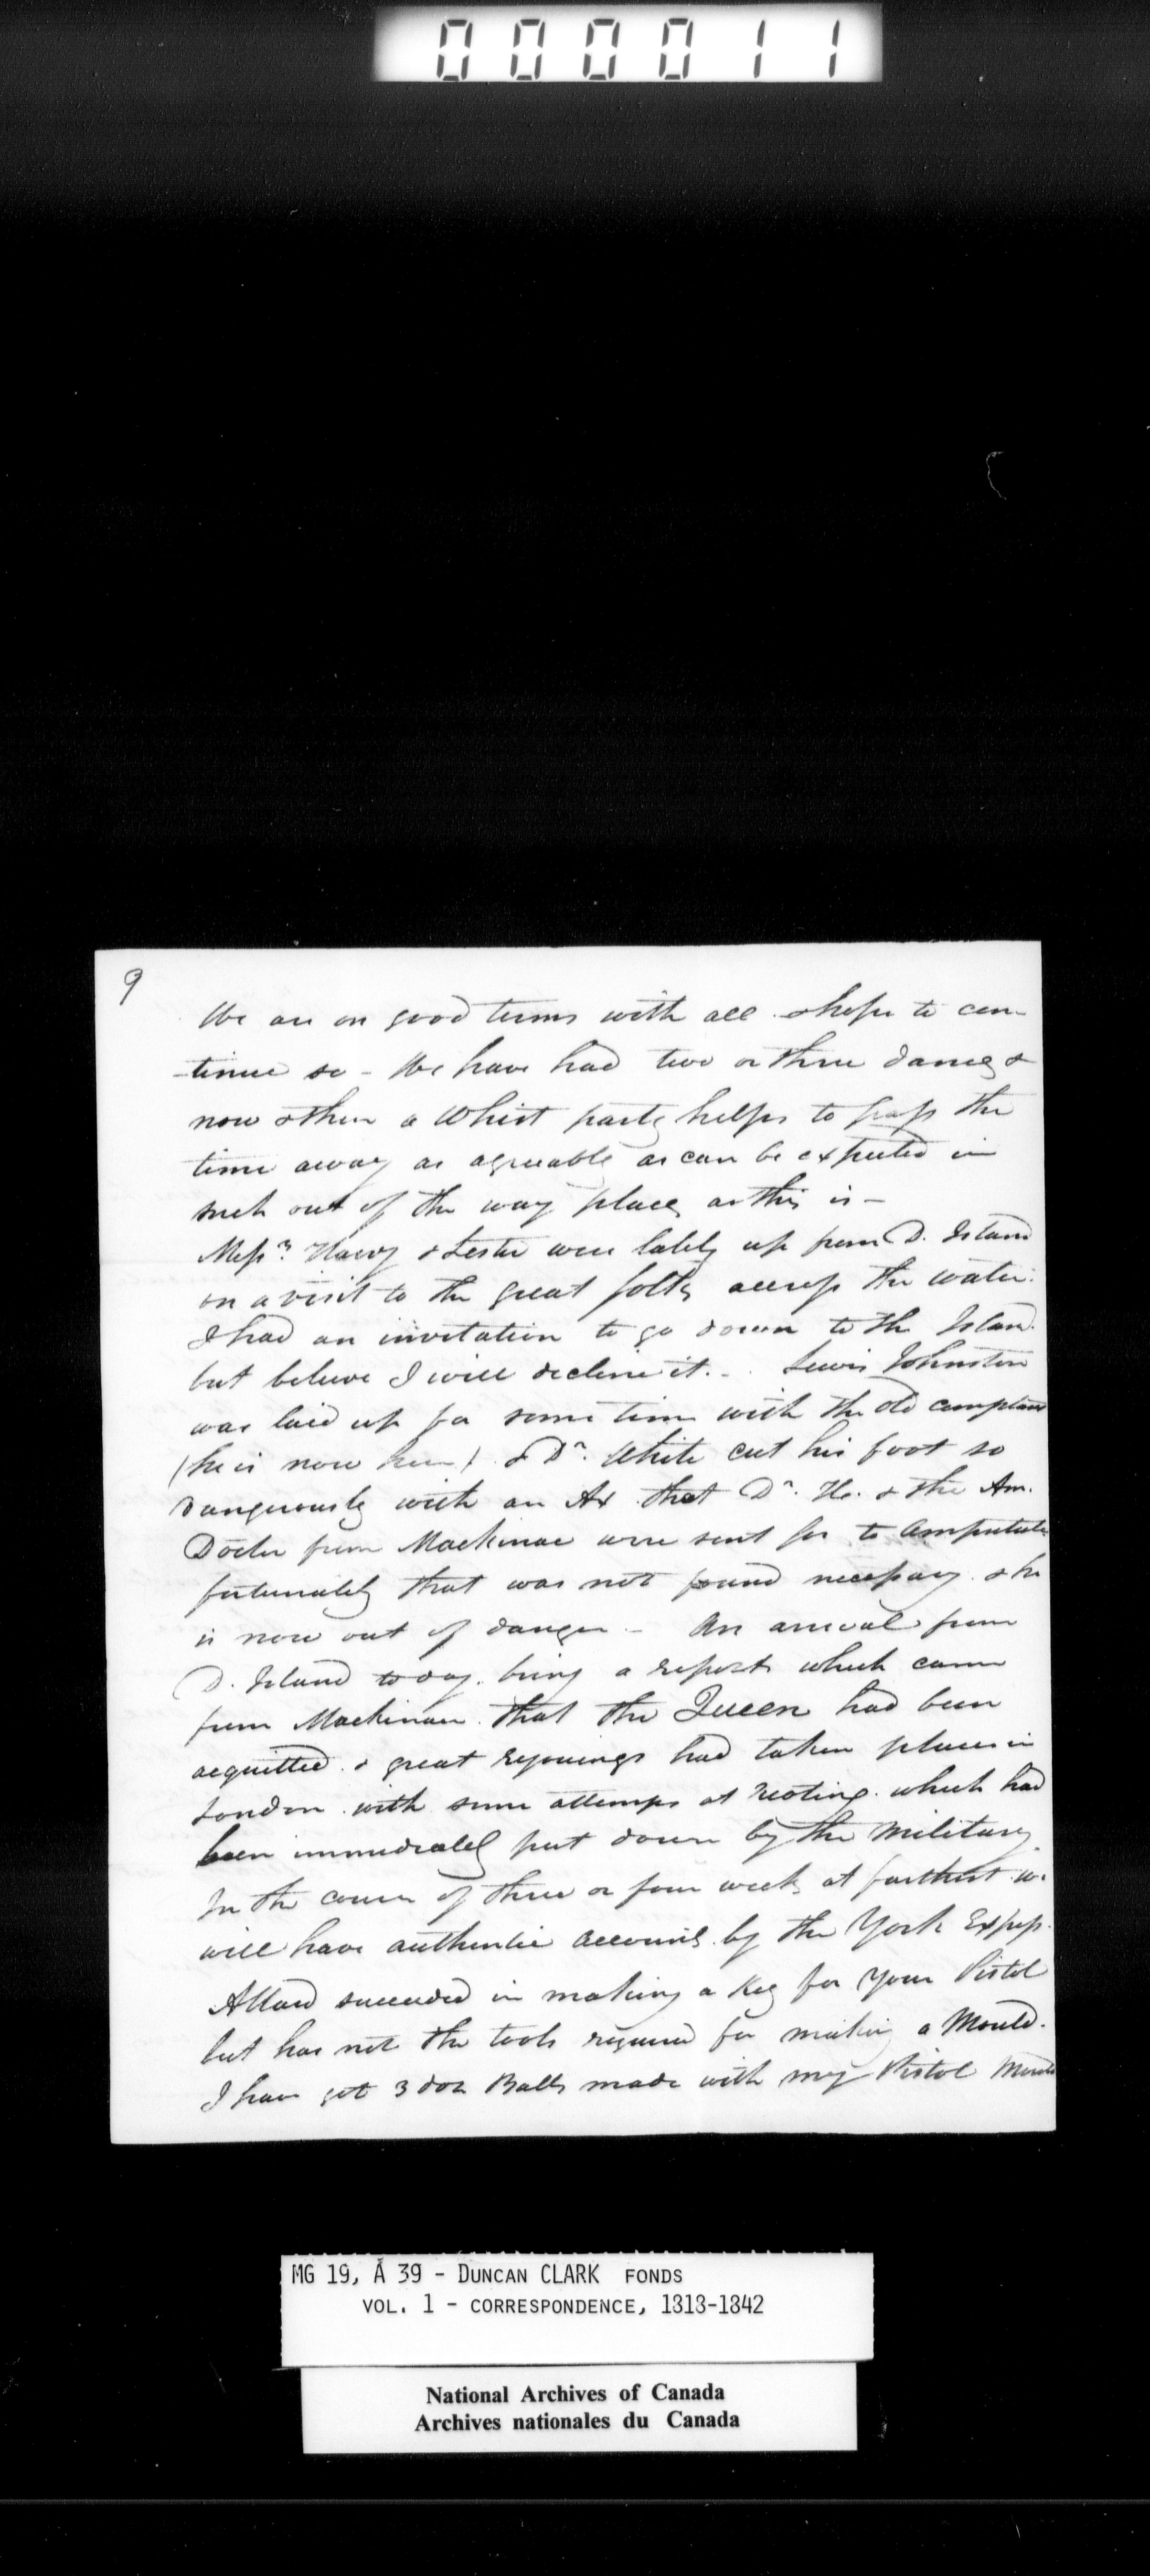 000011
9
We are on good terms with all & hope to con-
-tinue so - We have had two or three dances &
now & then a Whist party helps to pass the
time away as agreeable as can be expected in
such out of the way places as this is -
Messrs & Lester were lately up from D. Island
on a visit to the great folks across the water.
I had an invitation to go down to the Island
but believe I will decline it. - Lewis Johnston
was laid up for some time with the old complaint
(he is now here) & Dr. White cut his foot so
dangerously with an Ax that Dr. & the Am.
Doctor from Mackinac were sent for to amputate
fortunately that was not found necessary & he
is now out of danger - An arrival from
D. Island to day, bring a report which came
from Mackinac that the Queen had been
acquitted & great rejoicings had taken place in
London with some attemps at rioting which had
been immediately put down by the Military
In the course of three or four weeks at farthest we
will have authentic accounts by the York Express.
Allard succeeded in making a Key for your Pistol
but has not the tools required for making a Mould.
I have got 3 doz Balls made with my Pistol Mould
MG 19, A 39 - DUNCAN CLARK FONDS
VOL. 1 - CORRESPONDENCE, 1813-1842
National Archives of Canada
Archives nationales du Canada